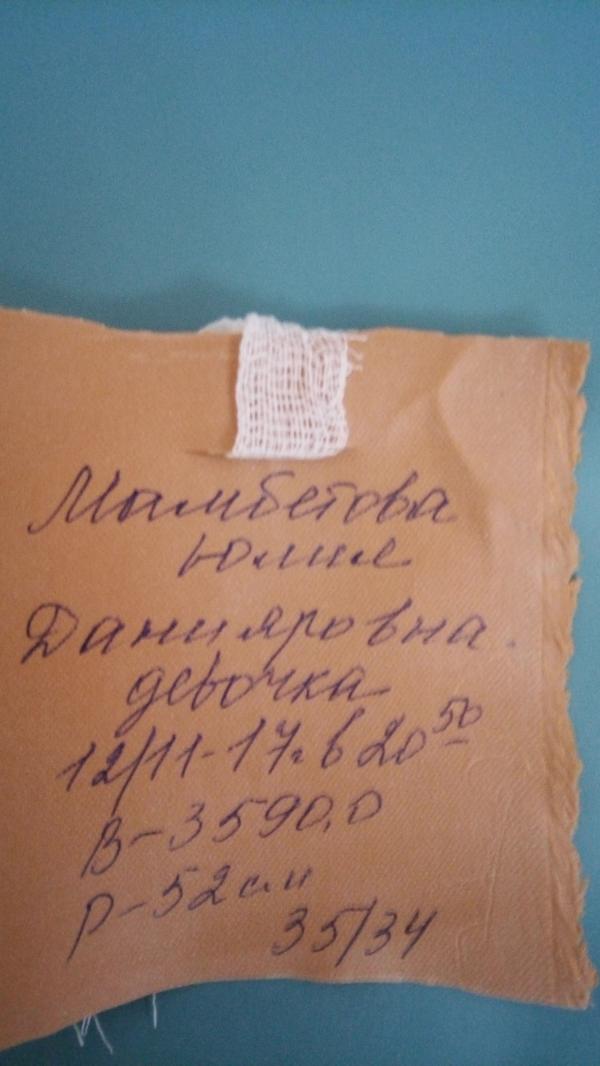 Мамбетова
Юлия
Данияровна.
девочка
12/11-17г в 20 50
В-3590,0
Р-52см
35/34